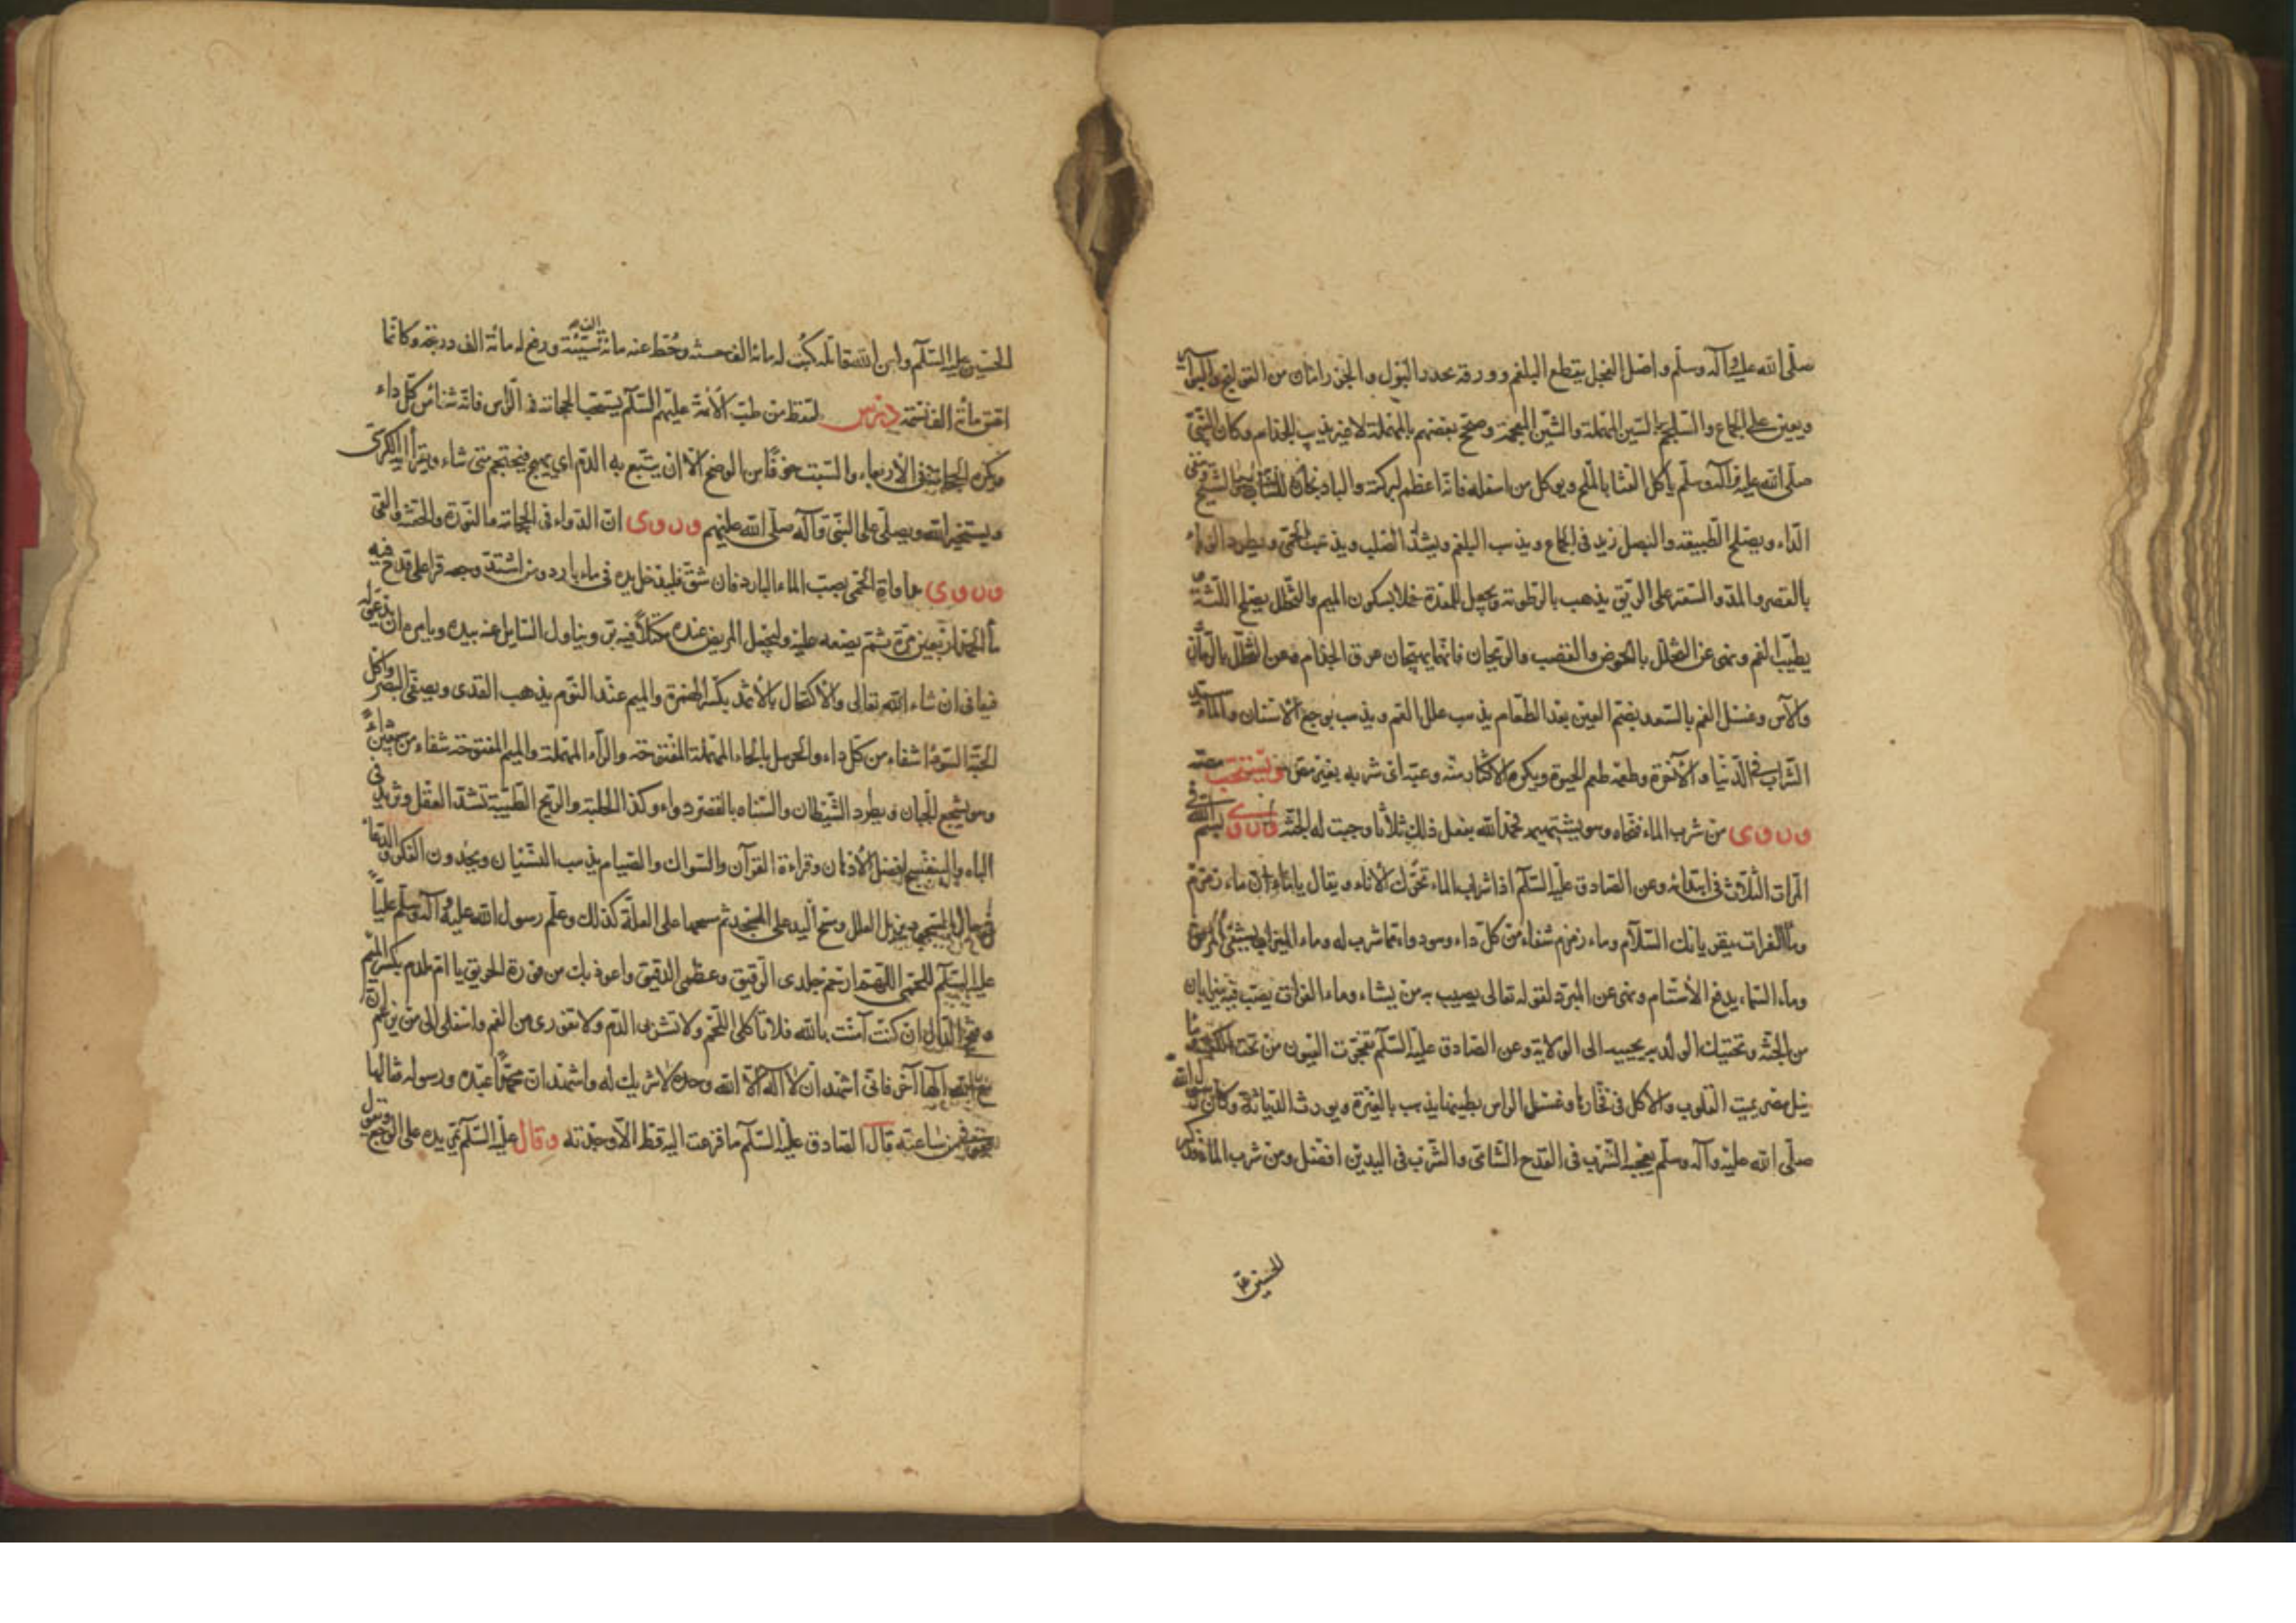 صلّى الله عليه وآله وسلّم واصل الفجل يقطع البلغم وورقه يحدر البول والجزر امان من القولنج والبواسير
ويعين على الجماع والسلجم بالسين المهملة والشين المعجمة وصحح بعضهم بالمهملة لا غير يذيب الجذام وكان النبيّ
صلّى الله عليه وآله وسلّم يأكل القثا بالملح ويوكل من اسفله فانه اعظم لبركته والباذنجان للشاب والشيخ
الداء ويصلح الطبيعة والبصل يزيد في الجماع ويذهب البلغم ويشدّ الصلب ويذهب الحمّى ويطرد الوباء
بالقصر والمد والسعتر على الريق يذهب بالرطوبة ويجعل للمعدة خملا بسكون الميم والتخلّل يصلح اللثة
يطيّب الفم ونهى عن التخلّل بالخوص والقصب والريحان فانهما يهيّجان عرق الجذام وعن التخلّل بالرمّان
والآس وغسل الفم بالسعد بضم السين بعد الطعام يذهب علل الفم ويذهب بوجع الاسنان والماء سيد
الشراب في الدنيا والآخرة وطعمه طعم الحيوة ويكره الاكثار منه وعبّه اى شربه بغير مص ويستحب مصّه
وروى من شرب الماء فنحّاه وهو يشتهيه فحمد الله يفعل ذلك ثلاثا وجبت له الجنّة وروى بسم الله في
المرات الثلاث في ابتدائه وعن الصادق عليه السّلم اذا شرب الماء تحرّك الاناء ويقال يا ماء ان ماء زمزم
وماء الفرات يقريانك السّلام وماء زمزم شفاء من كلّ داء وهو دواء مما شرب له وماء الميزاب يشفي المريض
وماء السماء يدفع الأسقام ونهى عن البرد لقوله تعالى يصيب به من يشاء وماء الفرات يصبّ فيه ميزابان
من الجنّة وتحنيك الولد به يحببه الى الولاية وعن الصادق عليه السّلم تفجّرت العيون من تحت الكعبة وماء
نيل مصر يميت القلوب والاكل في فخارها وغسل الراس بطينها يذهب بالغيرة ويورث الدياثة وكان رسول الله
صلّى الله عليه وآله وسلّم يعجبه الشرب في القدح الشامى والشرب في اليدين افضل ومن شرب الماء فذكر
الحسين عليه
الحسين عليه السّلم ولعن الله قاتله كتب له مائة الف حسنة وحُط عنه مائة الف سيّئة ورفع له مائة الف درجة وكانّما
اعتق مائة الف نسمة درس يلتقط من طبّ الأئمة عليهم السّلم يستحب الحجامة في الرأس فانّه شفاء من كلّ داء
ويكره الحجامة في الأربعاء والسبت خوفًا من الوضح الّا ان يتبيّغ به الدّم اى يهيج فيحتجم متى شاء ويقرأ آية الكرسى
ويستخير الله ويصلّي على النبيّ وآله صلّى الله عليهم وروى انّ الدواء في الحجامة والنورة والحقنة والقى
وروى مداواة الحمّى بصبّ الماء البارد فان شقّ فليدخل يده في ماء بارد ومن اشتدّ وجعه قرا على قدح فيه
ماء الحمد اربعين مرّة ثم يضعه عليه وليجعل المريض عنده مكتلاً فيه برّ ويناول السايل منه بيده ويامره ان يدعو له
فيعافى ان شاء الله تعالى والاكتحال بالأثمد بكسر الهمزة والميم عند النوم يذهب القذى ويصفّى البصر واكل
الحبّة السوداء شفاء من كل داء والحرمل بالحاء المهملة المفتوحة والراء المهملة والميم المفتوحة شفاء من سبعين داءً
وهو يشجع الجبان ويطرد الشيطان والسناه بالقصر دواء وكذا الحلبة والريح الطيّبة تشدّ العقل وتزيد في
الباه والبنفسج افضل الأدهان وقراءة القرآن والسواك والصيام يذهب النسيان ويحدّ الفكر والدعا
في حال السجود يزيل العلل ومسح اليد على المسجد ثم مسحها على العلّة كذلك وعلّم رسول الله عليه وآله وسلّم عليّاً
عليه السّلم للحمّى اللهمّ ارحم جلدى الرّقيق وعظمى الدقيق واعوذ بك من فورة الحريق يا امّ ملدم بكسر الميم
وفتح الدال ان كنت آمنت بالله فلا تأكلى اللّحم ولا تشربى الدّم ولا تفورى من الفم وانتقلى الى من يزعم انّ
مع الله الهًا آخر فانّى اشهد ان لا اله الّا الله وحده لا شريك له واشهد ان محمّدًا عبده ورسوله فقالها
فعوفى من ساعته قال الصادق عليه السّلم ما فزعت اليه قط الّا وجدته وقال عليه السّلم تمرّ يده على الوجع وتقول